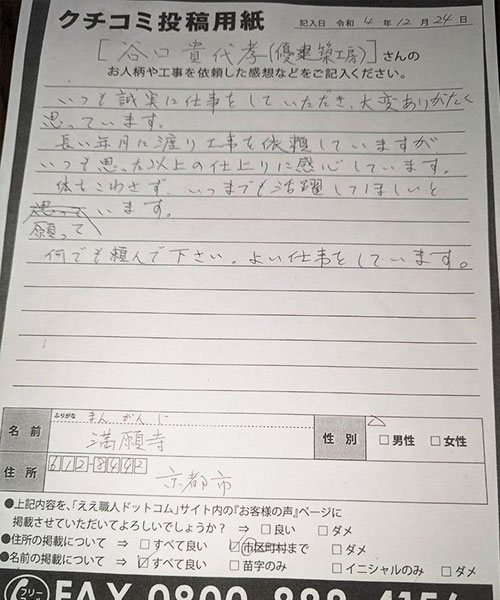 クチコミ投稿用紙
記入日 令和 4 年 12 月 24 日
[谷口貴代孝(優建築工房)]さんの
お人柄や工事を依頼した感想などをご記入ください。
いつも誠実に仕事をしていただき、大変ありがたく
思っています。
長い年月に渡り工事を依頼していますが
いつも思った以上の仕上りに感心しています。
体をこわさず、いつまでも活躍してほしいと
思って います。
願って
何でも頼んで下さい。よい仕事をしています。
ふりがな まん がん じ
名前 満願寺 性別 □男性 □女性
612-8492
住所 京都市
●上記内容を、「ええ職人ドットコム」サイト内の『お客様の声』ページに
掲載させていただいてよろしいでしょうか? ⇒ □良い □ダメ
●住所の掲載について ⇒ □すべて良い ☑市区町村まで □ダメ
●名前の掲載について ⇒ ☑すべて良い □苗字のみ □イニシャルのみ □ダメ
フリー
FAX 0800-888-4156